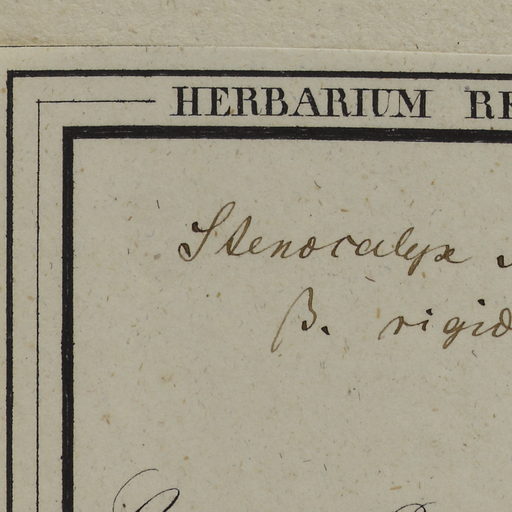 HERBARIUM RE
Stenocalyx
β. rigid